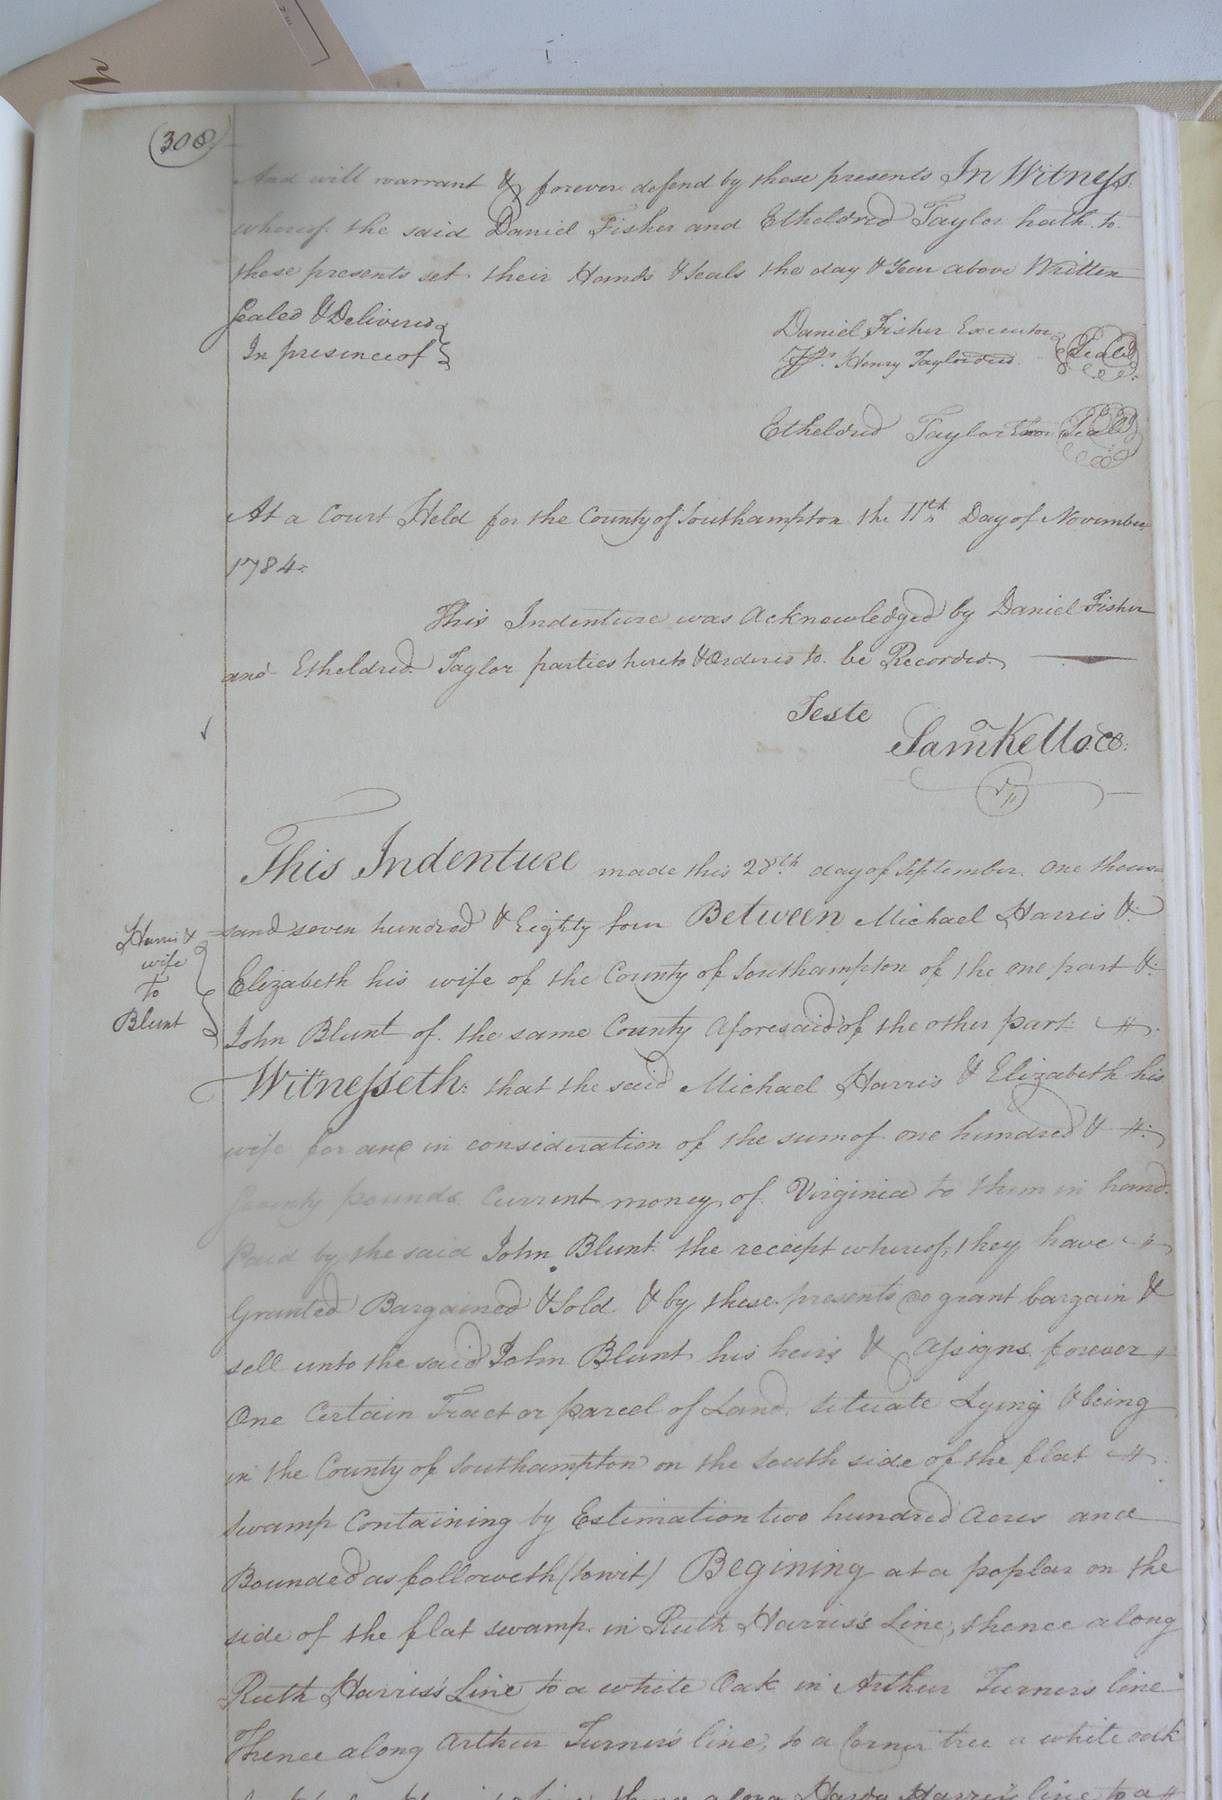 308
And will warrant & forever defend by these presents In Witness
whereof the said Daniel Fisher and Etheldred Taylor hath to
these presents set their Hands & Seals the day & Year above Written
Sealed & Delivered
In presence of
Daniel Fisher Executor
Henry Taylor decd.
Seal
Etheldred Taylor Seal
At a Court Held for the County of Southampton the 11th Day of November
1784
This Indenture was Acknowledged by Daniel Fisher
and Etheldred Taylor parties hereto & Ordered to be Recorded
Teste
Saml Kello CC
This Indenture made this 28th day of September One thou
sand seven hundred & Eighty four Between Michael Harris &
Harris & wife To Blunt
Elizabeth his wife of the County of Southampton of the one part &
John Blunt of the same County aforesaid of the other part
Witnesseth: that the said Michael Harris & Elizabeth his
wife for and in consideration of the sum of one hundred &
pounds Current money of Virginia to them in hand
Paid by the said John Blunt the receipt whereof, they have
Granted Bargained & Sold & by these presents do grant bargain &
sell unto the said John Blunt his heirs & Assigns forever
One Certain Tract or parcel of Land Situate Lying & being
in the County of Southampton on the South side of the flat
swamp Containing by Estimation two hundred Acres and
Bounded as followeth (towit) Begining at a poplar on the
side of the flat swamp in Ruth Harris's Line, thence along
Ruth Harris's Line to a white Oak in Arthur Turners line
Thence along Arthur Turner's line, to a Corner tree a white oak
thence along Hardy Harris's line to a